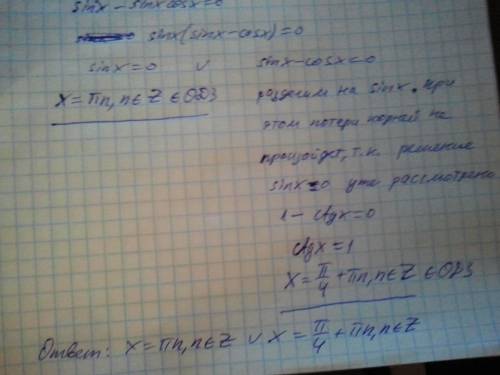 sinx - sinxcosx=0
sinx(sinx-cosx)=0
sinx=0 ∨ sinx-cosx=0
x=πn, n∈Z ∈ ОДЗ
разделим на sinx. При
этом потери корней не
произойдет, т.к. решение
sinx=0 уже рассмотрено
1-ctgx=0
ctgx=1
x=π/4+πn, n∈Z ∈ ОДЗ
Ответ: x=πn, n∈Z ∨ x=π/4+πn, n∈Z